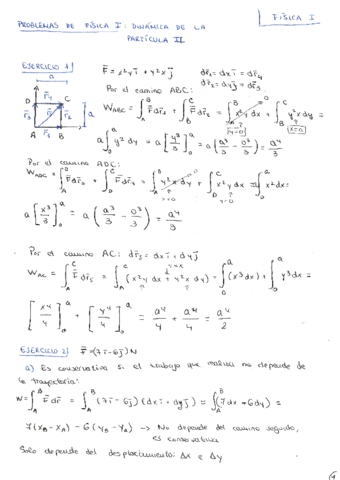 FÍSICA I
PROBLEMAS DE FÍSICA I: DINÁMICA DE LA
PARTÍCULA II
EJERCICIO 1)
F̄ = x²y ī + y²x j̄
dr̄₁ = dx ī = dr̄₄
dr̄₂ = dy j̄ = dr̄₃
Por el camino ABC:
W_ABC = ∫_A^B F̄ dr̄₁ + ∫_B^C F̄ dr̄₂ = ∫_A^B x²y dx + ∫_B^C y²x dy =
y=0 x=a
a ∫_0^a y² dy = a [y³/3]_0^a = a (a³/3 - 0³/3) = a⁴/3
Por el camino ADC:
W_ADC = ∫_A^D F̄ dr̄₃ + ∫_D^C F̄ dr̄₄ = ∫_A^D y²x dy + ∫_D^C x²y dx = a ∫_0^a x² dx =
a [x³/3]_0^a = a (a³/3 - 0³/3) = a⁴/3
Por el camino AC: dr̄₅ = dx ī + dy j̄
y=x
W_AC = ∫_A^C F̄ dr̄₅ = ∫_A^C (x²y dx + y²x dy) = ∫_0^a (x³ dx) + ∫_0^a y³ dx =
[x⁴/4]_0^a + [y⁴/4]_0^a = a⁴/4 + a⁴/4 = a⁴/2
EJERCICIO 2) F̄ = (7ī - 6j̄) N
a) Es conservativa si el trabajo que realiza no depende de
la trayectoria:
W = ∫_A^B F̄ dr̄ = ∫_A^B (7ī - 6j̄) (dx ī + dy j̄) = ∫_A^B (7dx + 6dy) =
7(x_B - x_A) - 6(y_B - y_A) → No depende del camino seguido,
es conservativa
Solo depende del desplazamiento: Δx e Δy
1